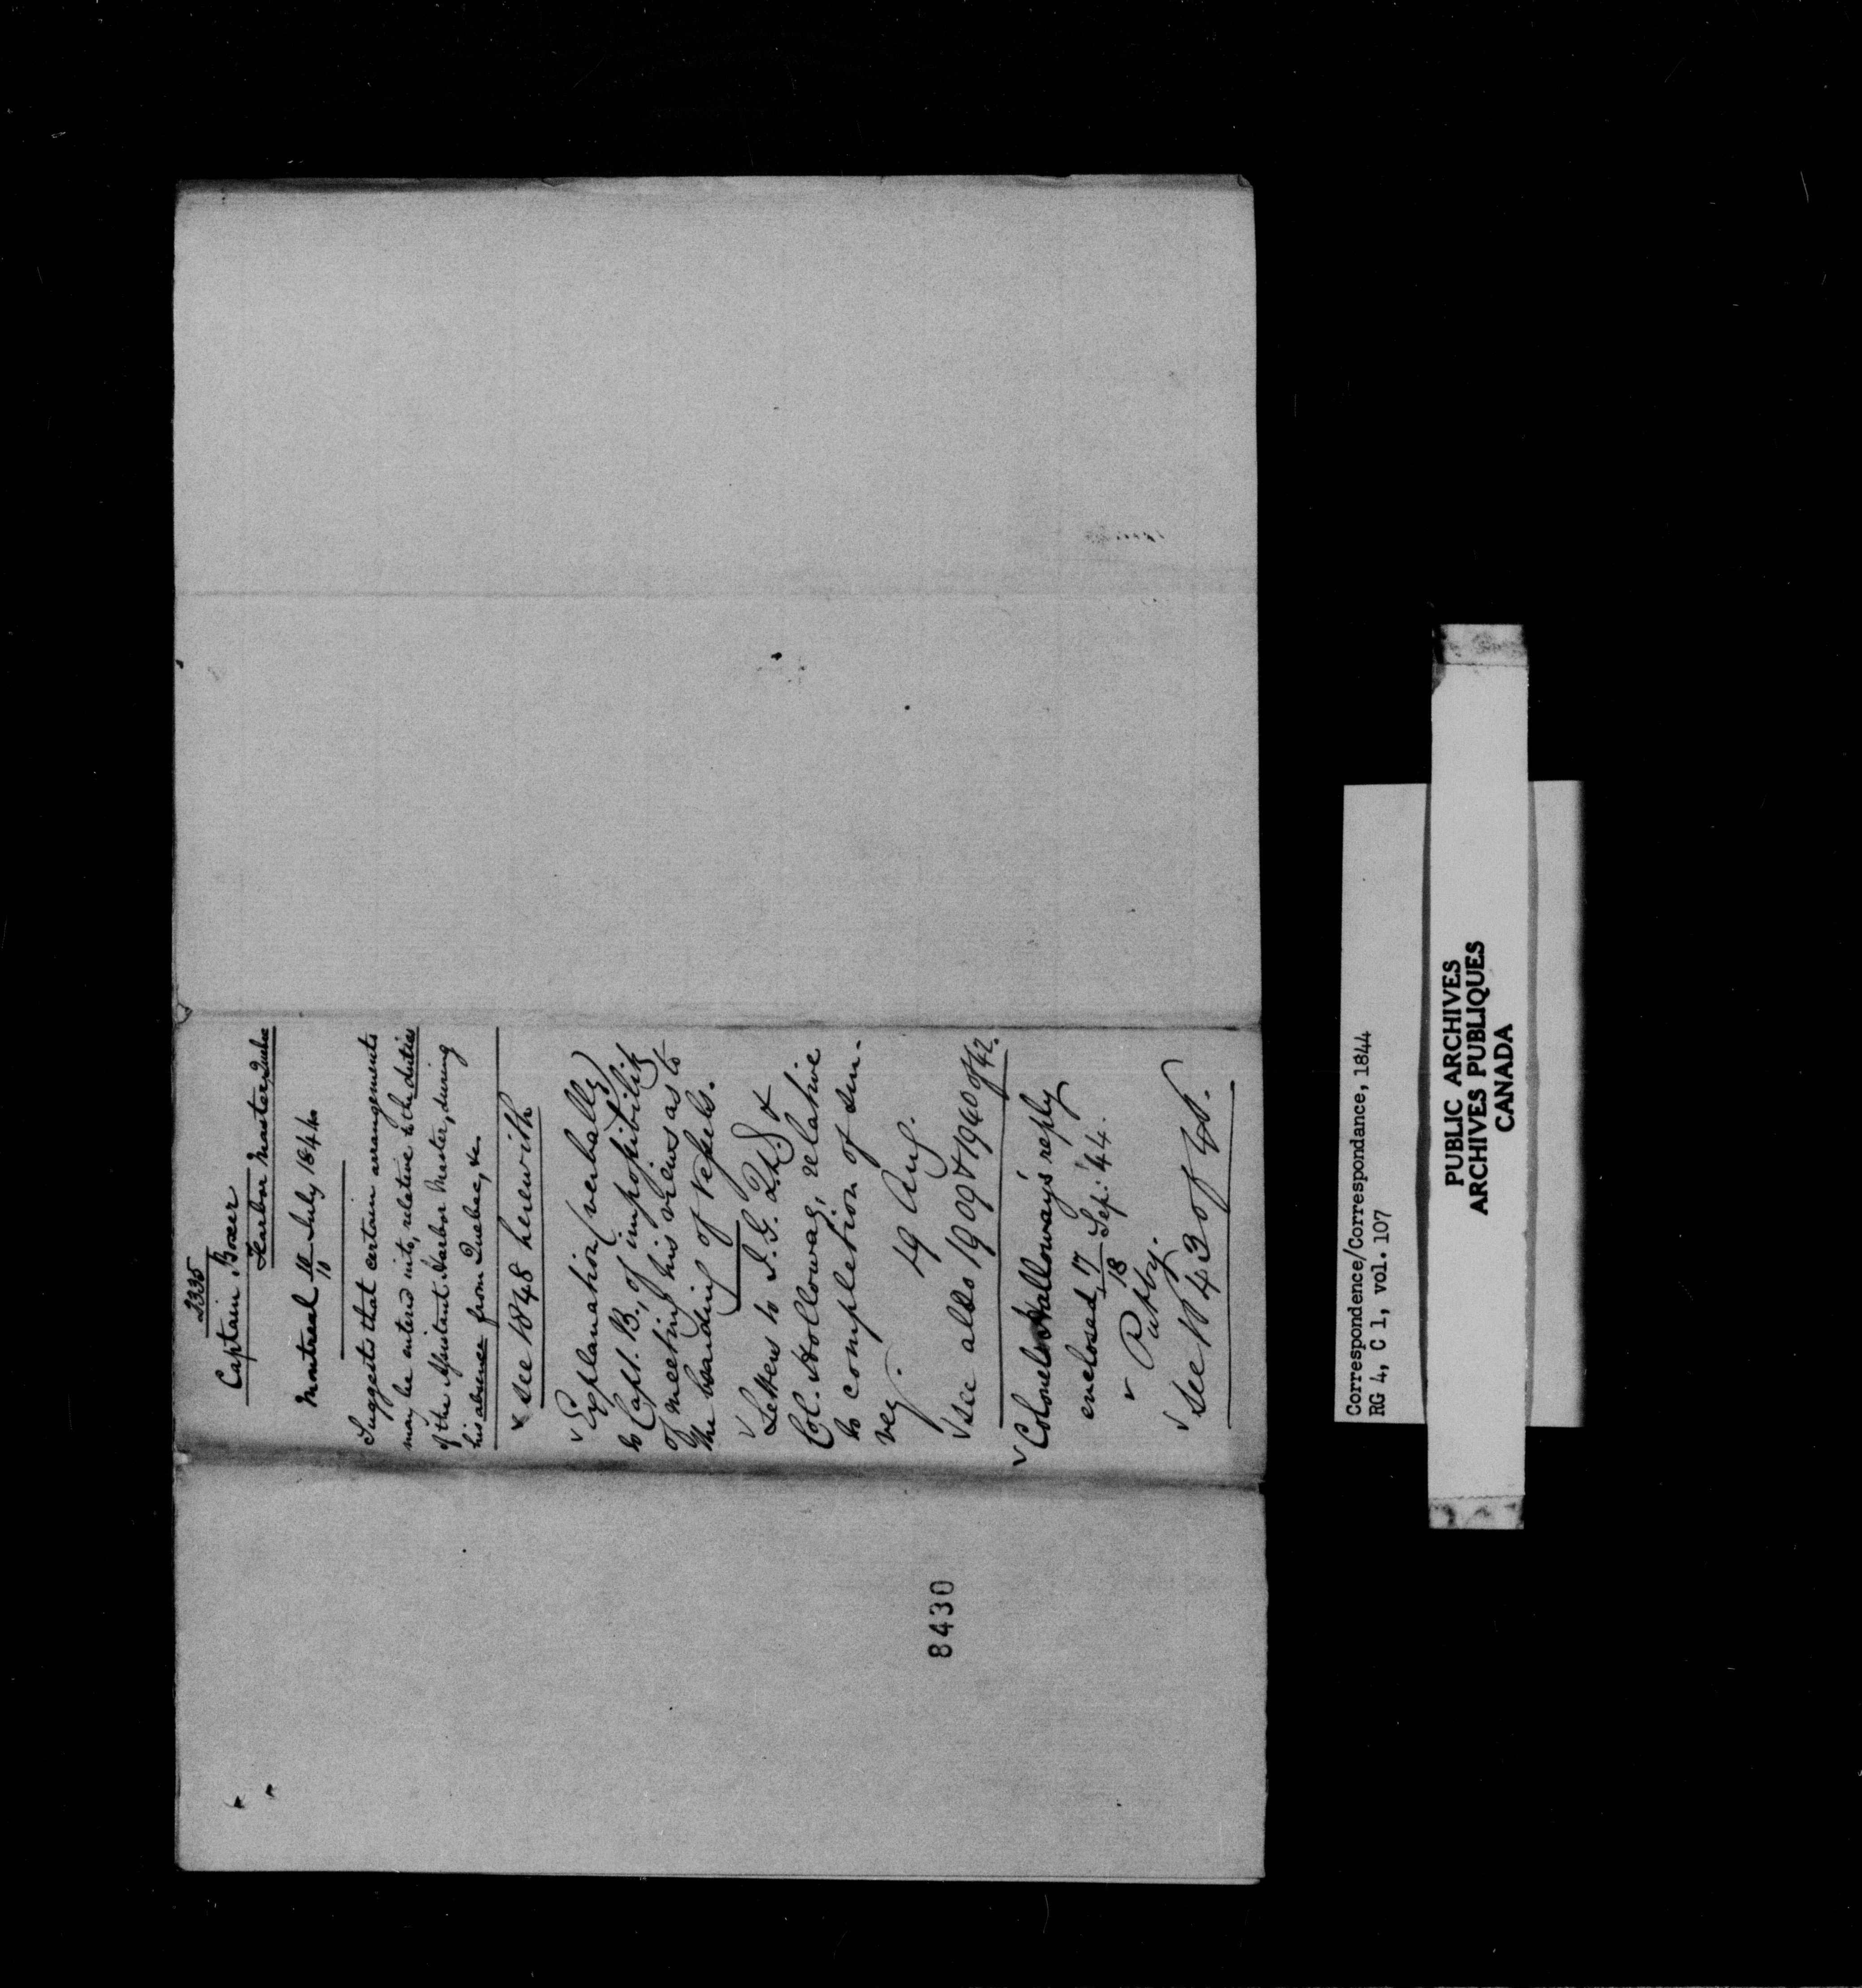 2335
Captain Boxer
Harbor Master, Quebec
Montreal 10 July 1844
Suggests that certain arrangements
may be entered into, relative to the duties
of the Assistant Harbor Master, during
his absence from Quebec, &c
see 1848 herewith
Explanation (verbally)
to Capt. B., of impossibility
of meeting his views as to
the boarding of Vessels.
Letters to I. G. &
Col. Holloway, relative
to completion of sur-
vey.
19 Aug.
see also 1909 & 1960 of 42.
Colonel Holloway's reply
enclosed 17 Sep: '44.
18
see No 43 of 45.
8430
Correspondence/Correspondance, 1844
RG 4, C 1, vol. 107
PUBLIC ARCHIVES
ARCHIVES PUBLIQUES
CANADA